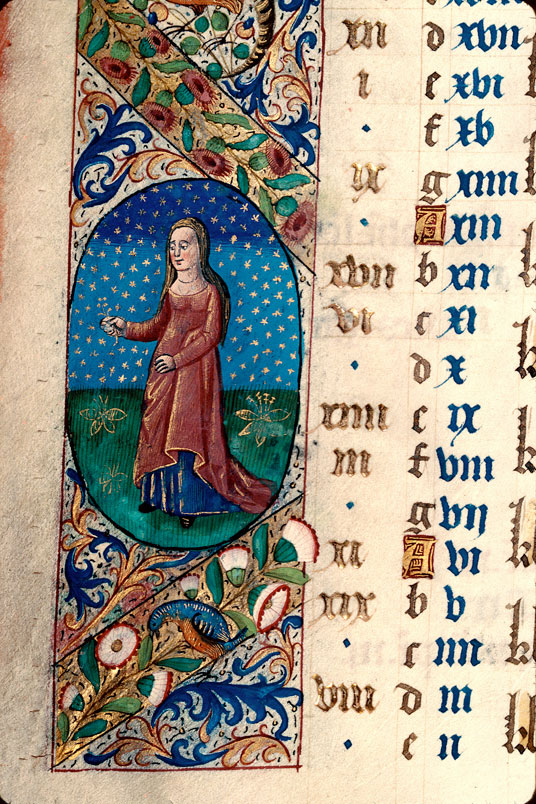 xii d xvii
i e xvi
· f xv
ix g xiiii
· A xiii
xvii b xii
vi c xi
· d x
xiiii e ix
iii f viii
· g vii
xi A vi
xix b v
· c iiii
viii d iii
· e ii